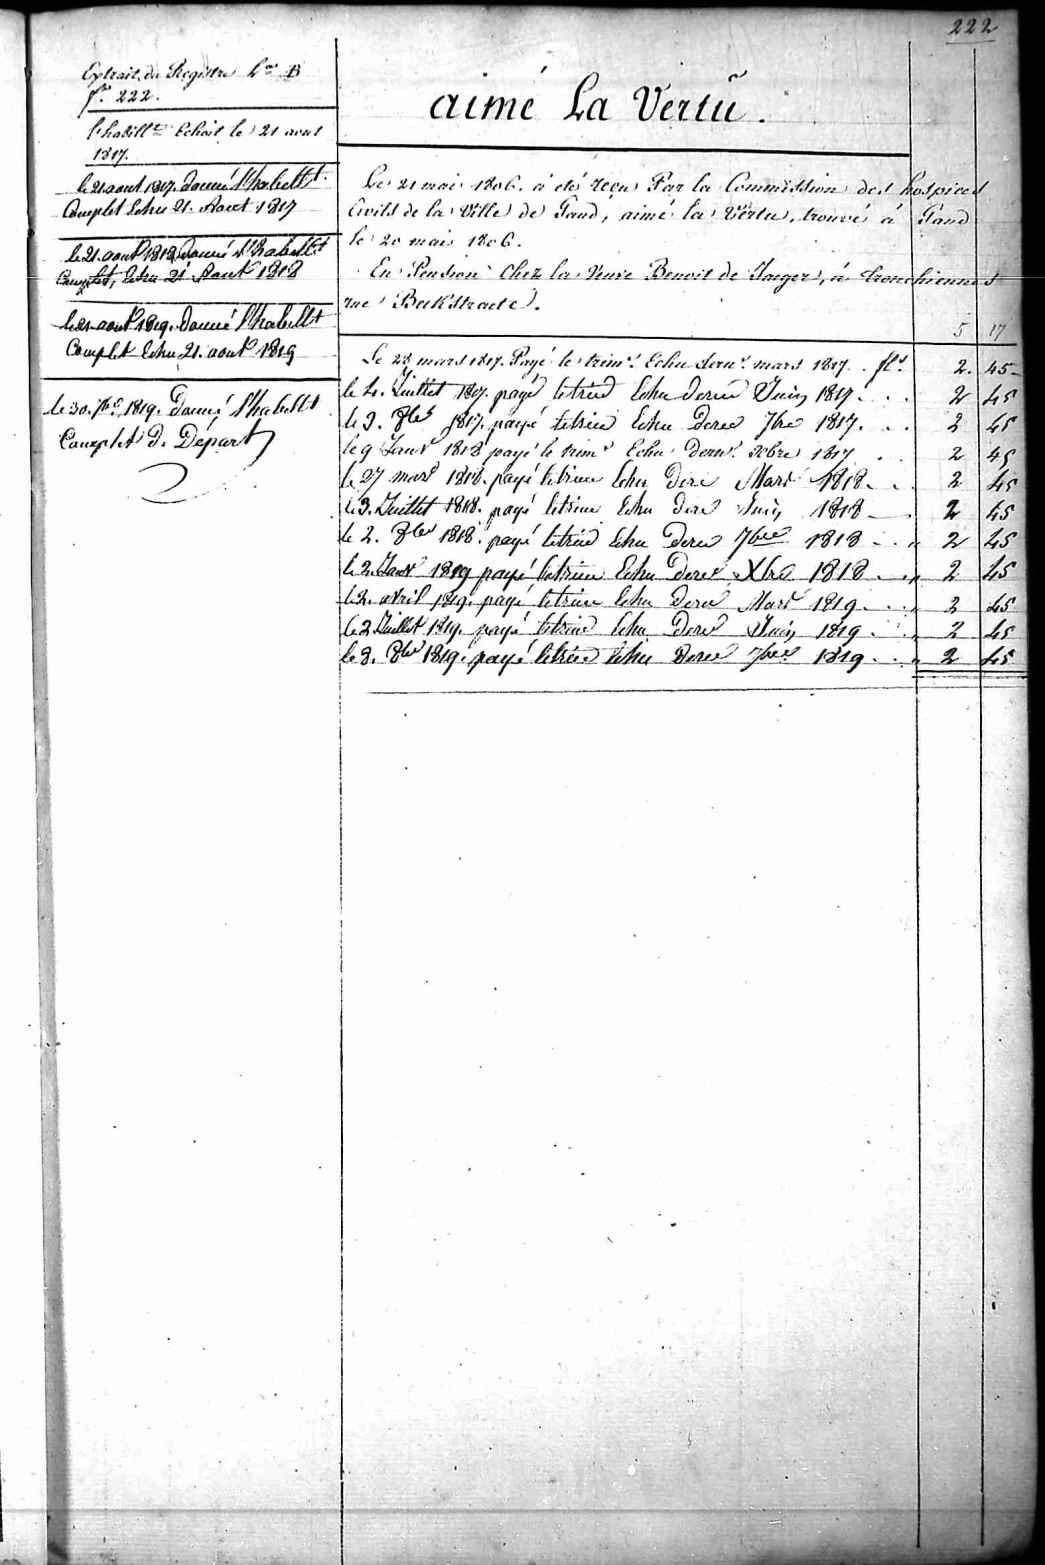 222
Extrait du Registre Lre B
fo. 222.
l'habillt Echoit le 21 aout
1817.
le 21 aout 1817. donné l'habillt
Complet Echu 21. Aout 1817
le 21. aout 1818 donné l'habillt
Complet, Echu 21 Aout 1818
le 21 aout 1819. donné l'habillt
Complet Echu 21. aout 1819
le 30. 7bre 1819. donné l'habillt
Complet de Départ
aimé La Vertu.
Le 21 mai 1806. à eté reçu Par la Commission des hospices
Civils de la Ville de Gand, aimé la Vertu, trouvé à Gand
le 20 mai 1806.
En Pension Chez la Veuve Benoit de Jaeger, à tronchiennes
rue Bukstraete.
5 17
Le 28 mars 1817. Payé le trimr. Echu dernr. mars 1817. fls. 2. 45
le 4. Juillet 1817. payé le trim Echu dernr Juin 1817. . . 2 45
le 3. 8bre 1817. payé le trim Echu dernr 7bre 1817. . . 2 45
le 9 Janvr 1818 payé le trimr Echu dernr. xbre 1817 . . 2 45
le 27 mars 1818. payé le trim Echu dernr Mars 1818. . . 2 45
le 3. Juillet 1818. payé le trim Echu dernr Juin 1818 . 2 45
le 2. 8bre 1818. payé le trim Echu dernr 7bre 1818 . . " 2 45
le 2. Janvr 1819 payé le trim Echu dernr Xbre 1818 . . " 2 45
le 2. avril 1819. payé le trim Echu dernr Mars 1819. . . " 2 45
le 2 Juillet 1819. payé le trim Echu dernr Juin 1819 . . " 2 45
le 8. 8bre 1819. payé le trim Echu dernr 7bre 1819 . . " 2 45